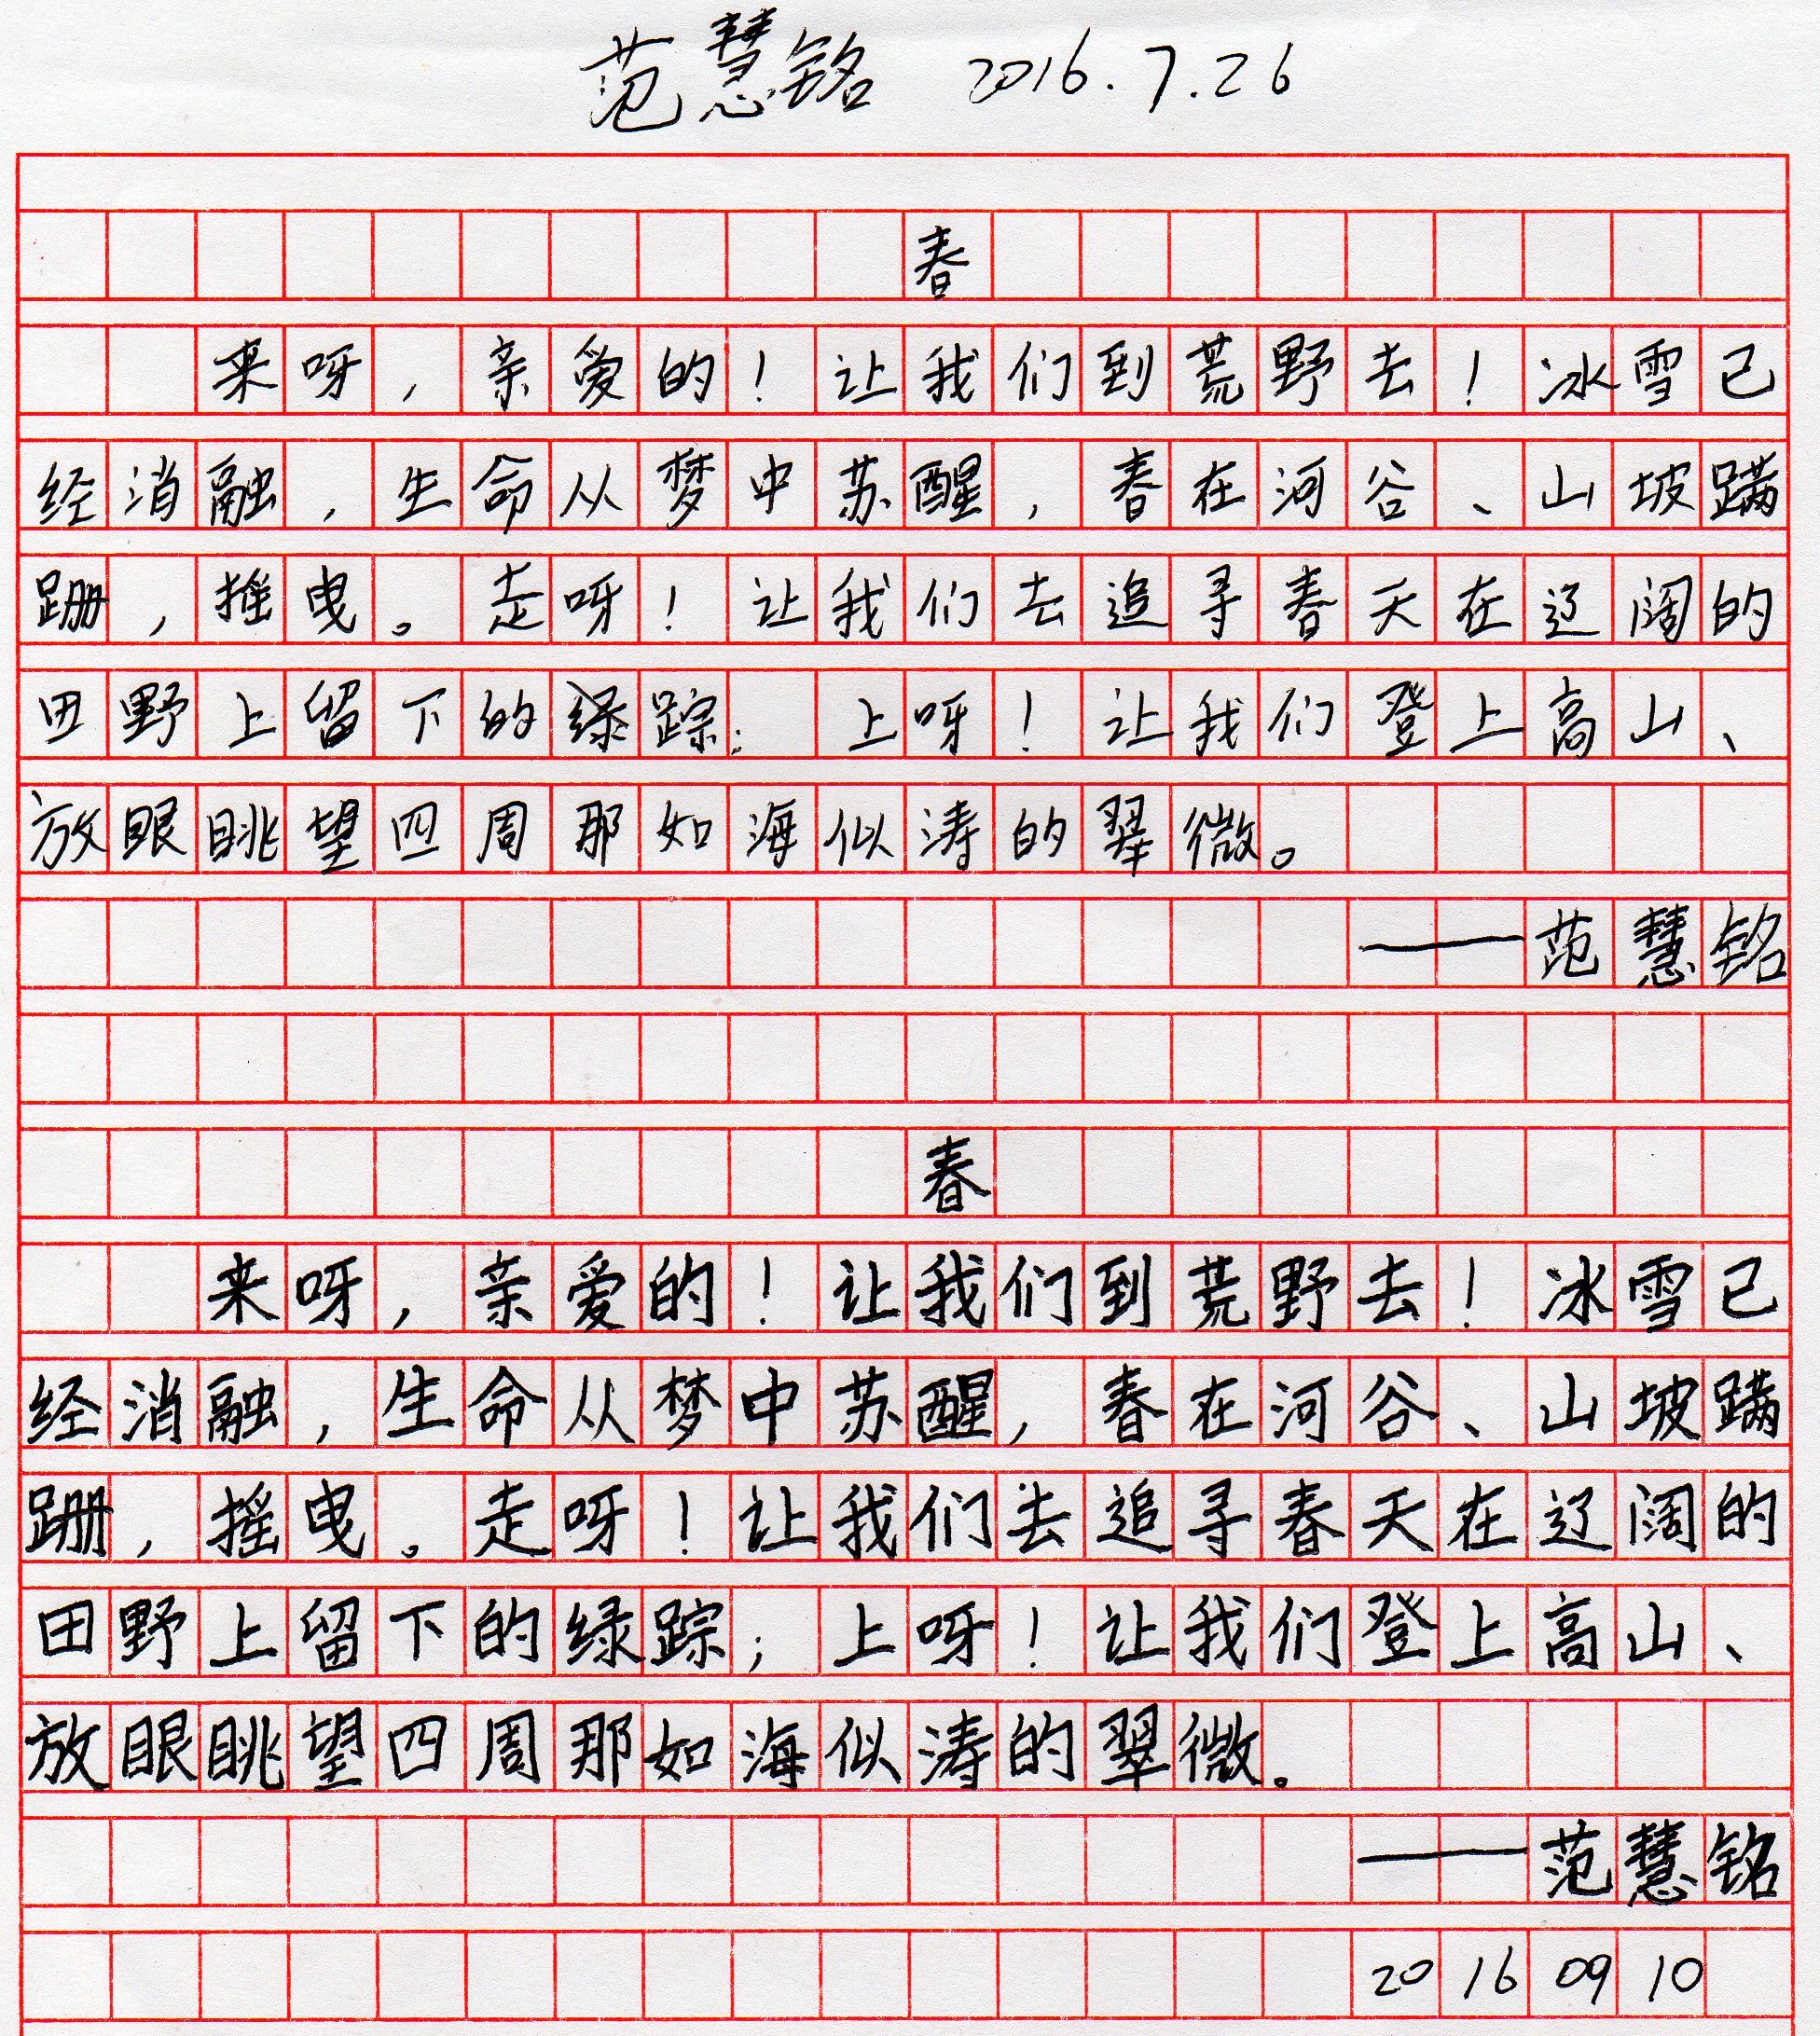 范慧铭 2016.7.26
春
来呀，亲爱的！让我们到荒野去！冰雪已
经消融，生命从梦中苏醒，春在河谷、山坡蹒
跚，摇曳。走呀！让我们去追寻春天在辽阔的
田野上留下的绿踪；上呀！让我们登上高山、
放眼眺望四周那如海似涛的翠微。
——范慧铭
春
来呀，亲爱的！让我们到荒野去！冰雪已
经消融，生命从梦中苏醒，春在河谷、山坡蹒
跚，摇曳。走呀！让我们去追寻春天在辽阔的
田野上留下的绿踪；上呀！让我们登上高山、
放眼眺望四周那如海似涛的翠微。
——范慧铭
20 16 09 10